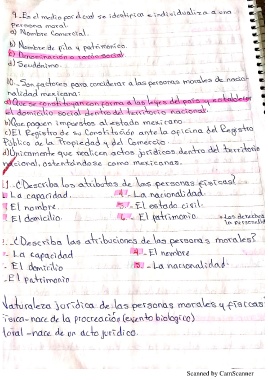 9.-Es el medio por el cual se identifica e individualiza a una
persona moral.
a) Nombre Comercial.
b) Nombre de pila y patrimonio.
c) Denominación o razón social
d) Seudónimo.
10.-Son factores para considerar a las personas morales de nacio-
nalidad mexicana:
a) Que se constituyan conforme a las leyes del país y establecer
el domicilio social dentro del territorio nacional.
b) Que paguen impuestos al estado mexicano.
c) El Registro de su Constitución ante la oficina del Registro
Público de la Propiedad y del Comercio.
d) Unicamente que realicen actos jurídicos dentro del territorio
nacional, ostentándose como mexicanas.
11.-¿Describa los atributos de las personas físicas?
La capacidad. 4.- La nacionalidad.
El nombre 5.- El estado civil.
El domicilio 6.- El patrimonio
+Los derechos
¿Describa las atribuciones de las personas morales?
- La capacidad 4.- El nombre
- El domicilio 5.- La nacionalidad.
- El patrimonio
Naturaleza jurídica de las personas morales y físicas
física-nace de la procreación (evento biológico)
moral -nace de un acto jurídico.
Scanned by CamScanner